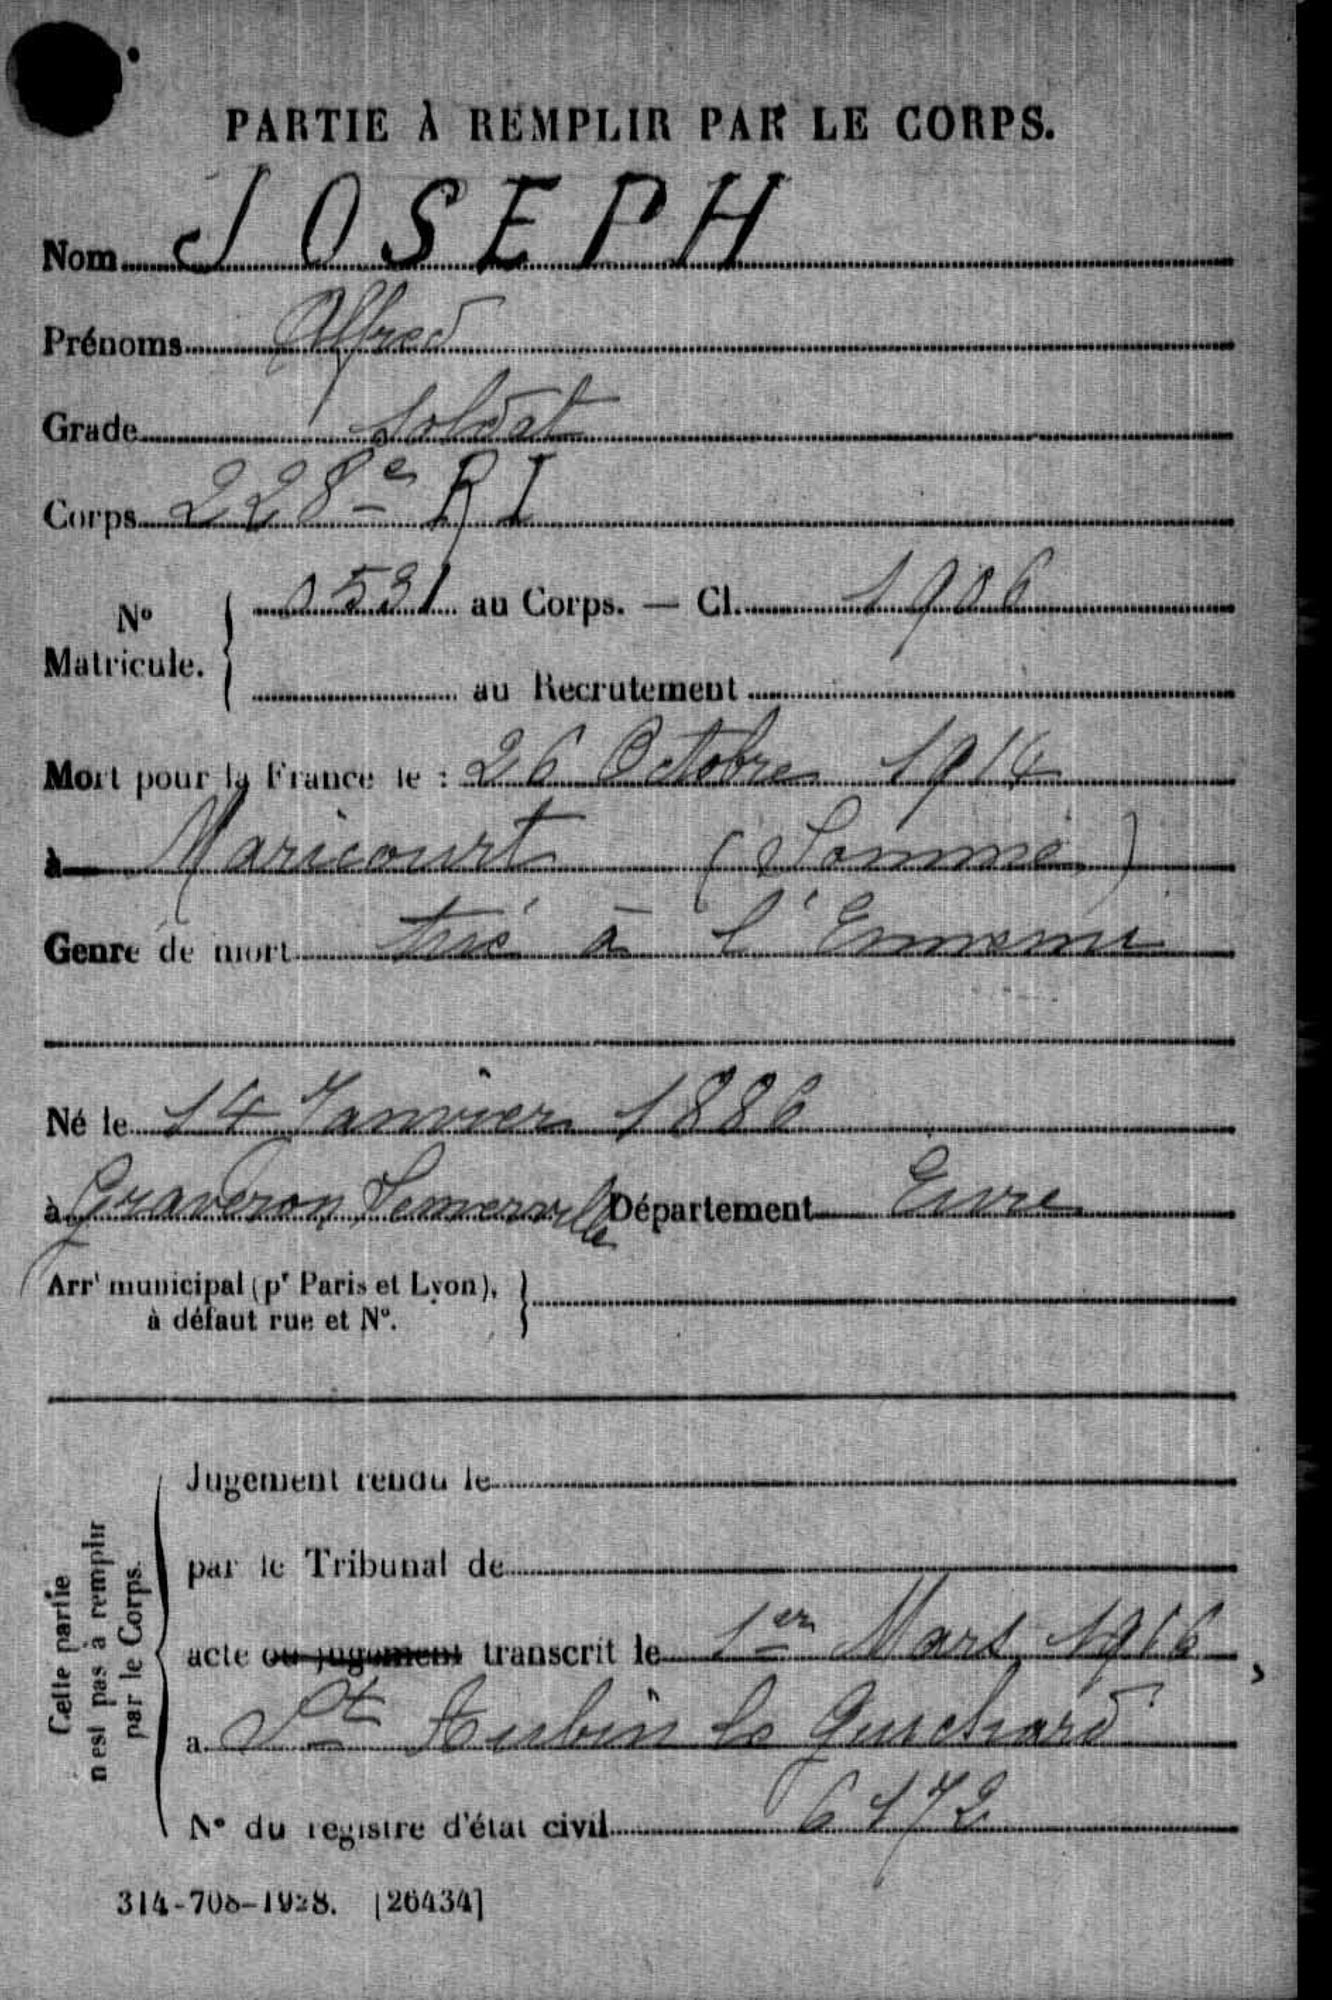 PARTIE À REMPLIR PAR LE CORPS.
Nom JOSEPH
Prénoms Alfred
Grade soldat
Corps 228e RI
No Matricule. 1531 au Corps. — Cl. 1906
au Recrutement
Mort pour la France le : 26 Octobre 1914
à Maricourt (Somme)
Genre de mort tué à l'Ennemi
Né le 14 Janvier 1886
à Graveron Semerville Département Eure
Arrt municipal (pr Paris et Lyon),
à défaut rue et No.
Cette partie
n'est pas à remplir
par le Corps.
Jugement rendu le
par le Tribunal de
acte ou jugement transcrit le 1er Mars 1916
a St Aubin le Guichard
No du registre d'état civil 6172
314-708-1928. [26434]